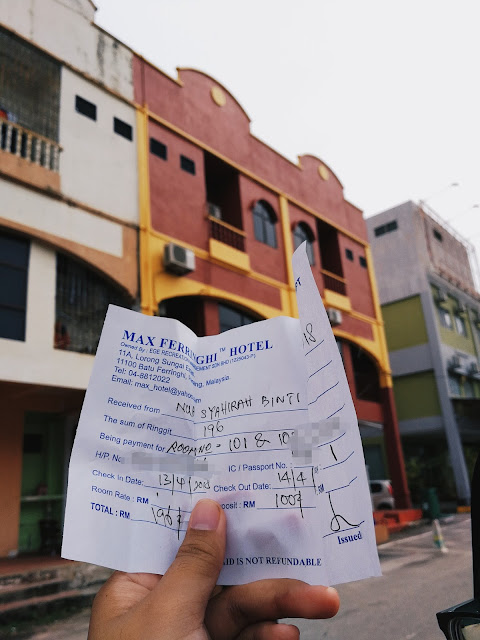 MAX FERRINGHI ™ HOTEL
Owned by : EGE RECREATION
EMENT SDN BHD (1225043-P)
11A, Lorong Sungai
11100 Batu Ferringhi, Malaysia
Tel: 04-8812022
Email: max_hotel@yahoo
Received from NUR SYAHIRAH BINTI
The sum of Ringgit 196
Being payment for ROOM NO - 101 &
H/P. No IC / Passport No.
Check In Date: 13/4/2018 Check Out Date: 14/4/
Room Rate : RM posit : RM 100
TOTAL : RM 196
Issued
AID IS NOT REFUNDABLE
18
1